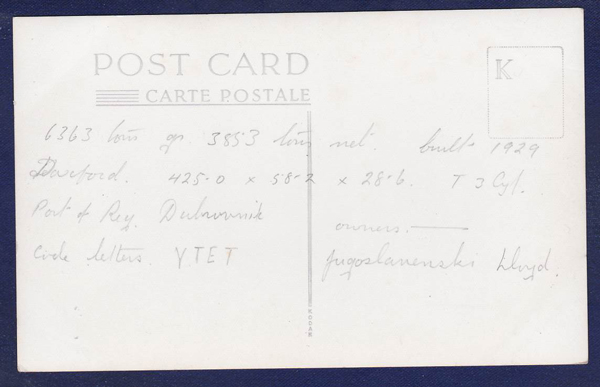 POST CARD
CARTE POSTALE
K
6363 tons grs 3853 tons net. built 1929
425-0 x 58-2 x 28-6. T 3 Cyl.
Port of Reg. Dubrovnik
owners:-
Code letters. YTET
Jugoslavenski Lloyd.
KODAK